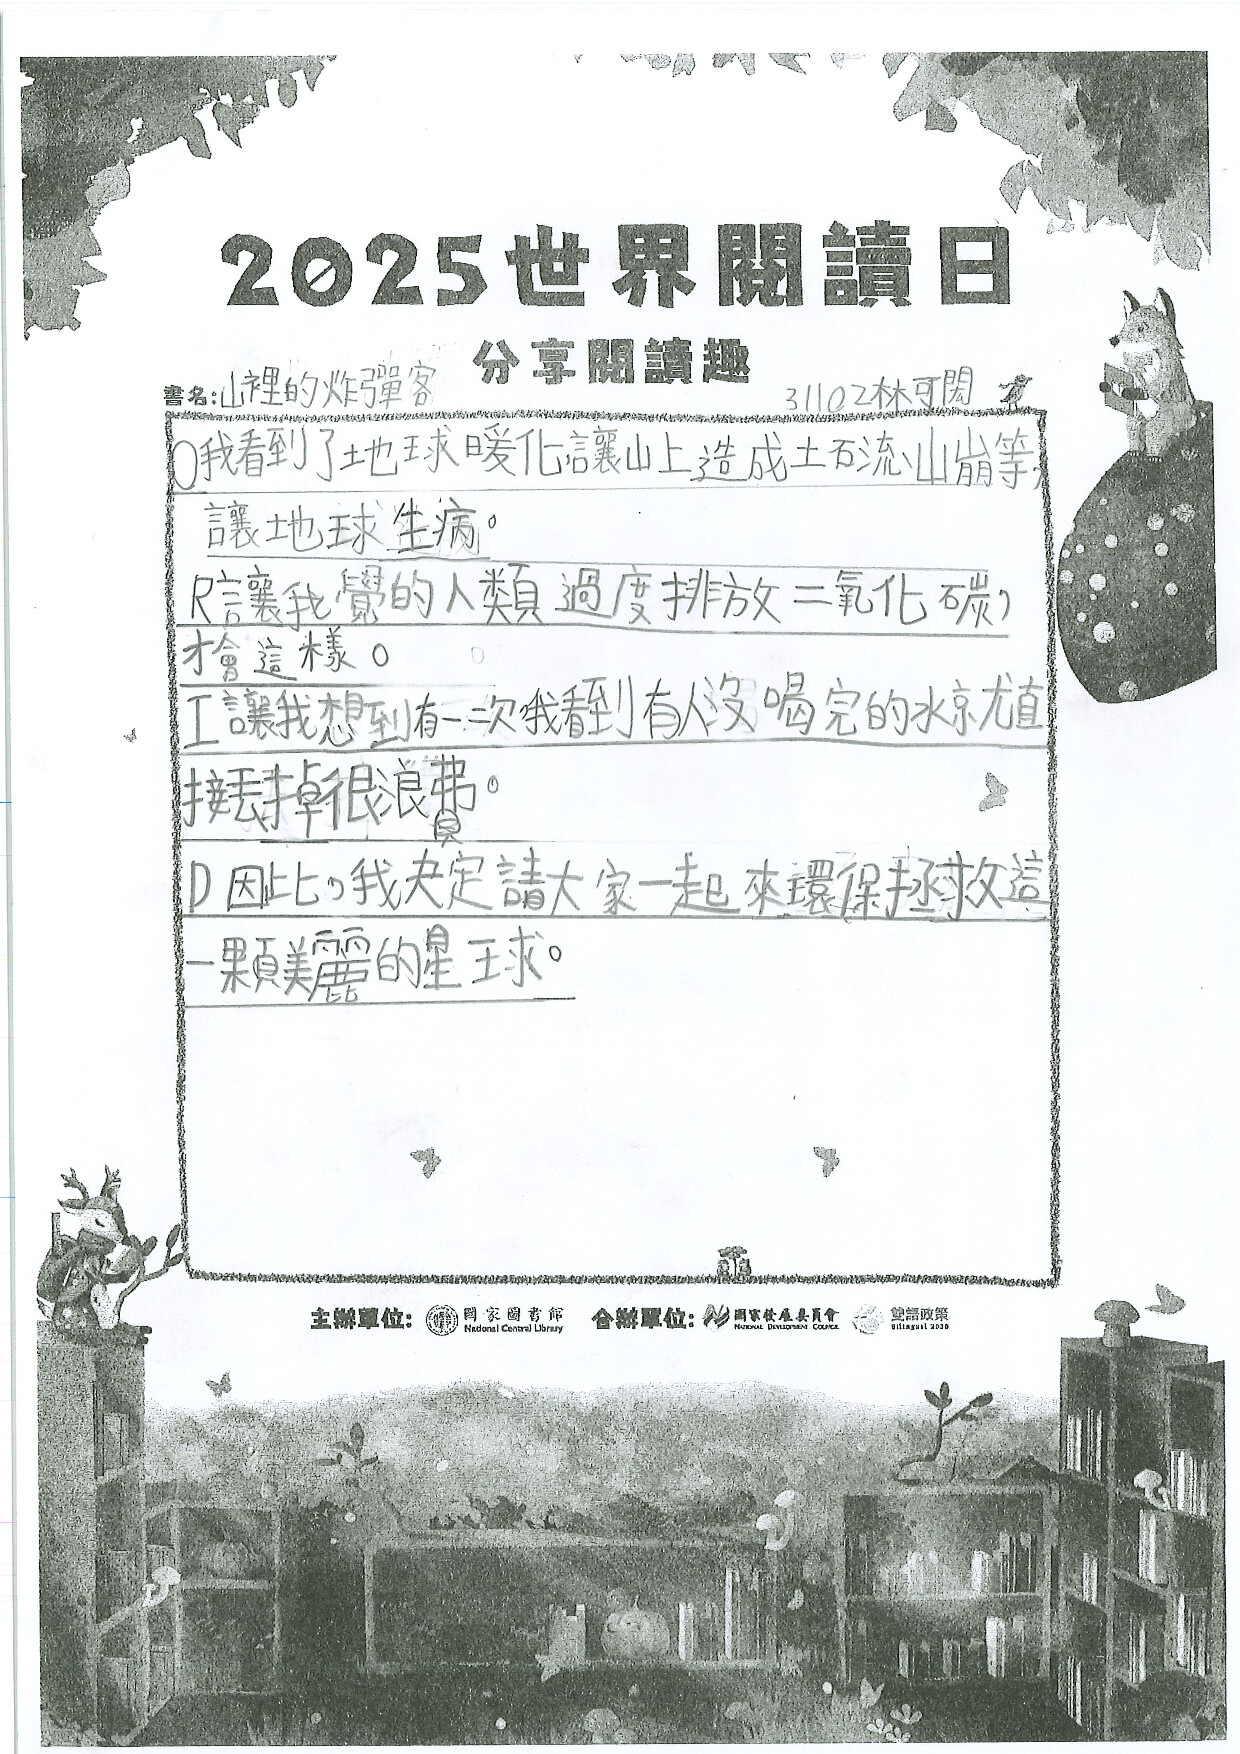 2025世界閱讀日
分享閱讀趣
書名:山裡的炸彈客
31102林可閎
O我看到了地球暖化讓山上造成土石流、山崩等,
讓地球生病。
R讓我覺的人類過度排放二氧化碳,
才會這樣。
I讓我想到有一次我看到有人沒喝完的水京尤直
接丟掉很浪費。
D因此,我決定請大家一起來環保拯救這
一顆美麗的星球。
主辦單位: 國家圖書館 National Central Library 合辦單位: 國家發展委員會 NATIONAL DEVELOPMENT COUNCIL 雙語政策 Bilingual 2030